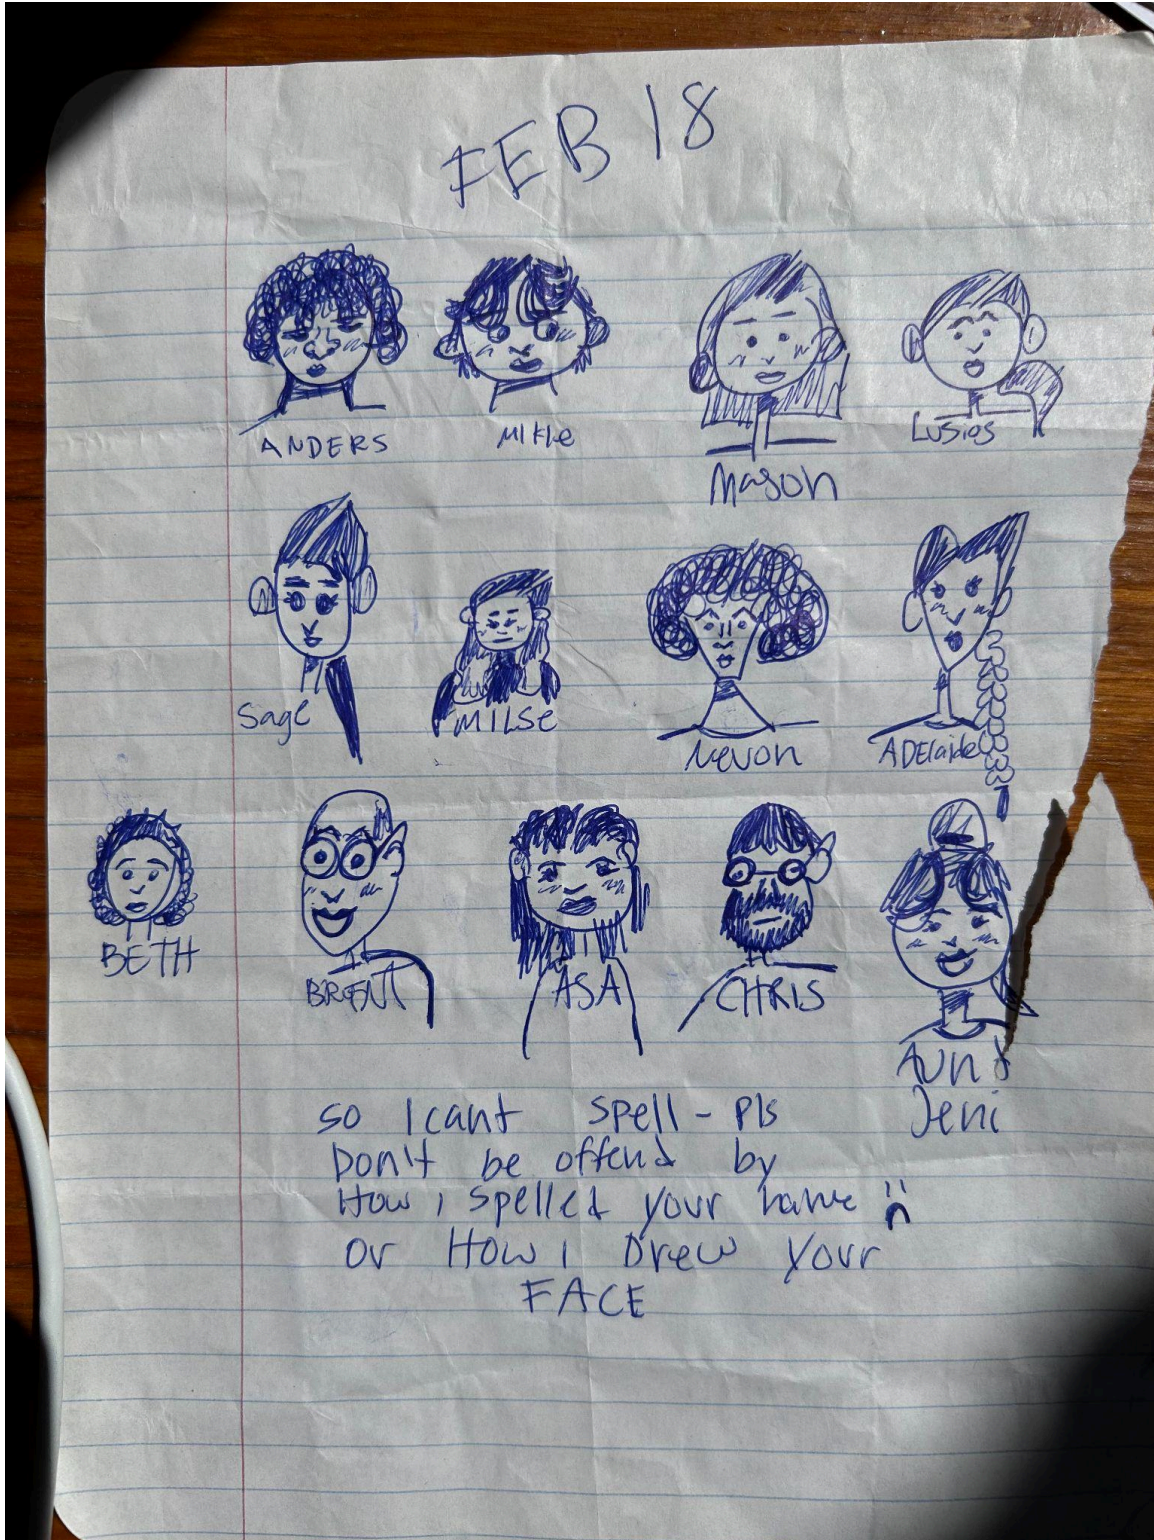 FEB 18
ANDERS
Mikle
Mason
Lusios
Sage
MILSE
Nevon
ADElaide
BETH
BRENT
ASA
CHRIS
AUNt
Jeni
so I cant spell - Pls
Don't be offend by
How i spelled your name
or How i Drew your
FACE